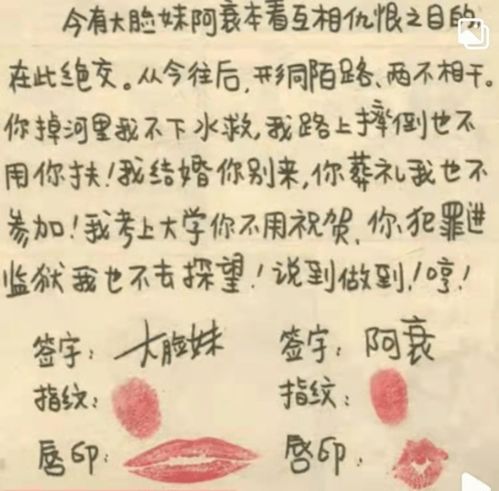 今有大脸妹阿衰本着互相仇恨之目的,
在此绝交。从今往后,形同陌路、两不相干。
你掉河里我不下水救,我路上摔倒也不
用你扶!我结婚你别来,你葬礼我也不
参加!我考上大学你不用祝贺,你犯罪进
监狱我也不去探望!说到做到!哼!
签字:大脸妹 签字:阿衰
指纹: 指纹:
唇印: 唇印: